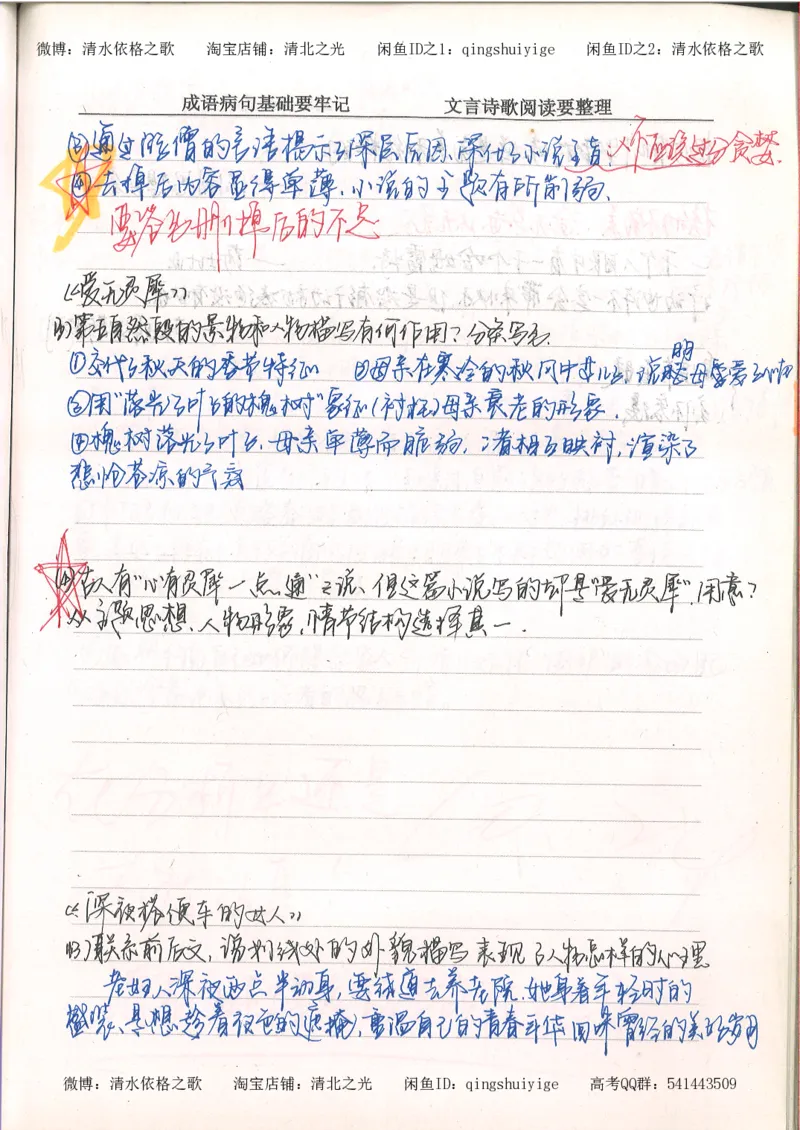 微博：清水依格之歌 淘宝店铺：清北之光 闲鱼ID之1：qingshuiyige 闲鱼ID之2：清水依格之歌
成语病句基础要牢记 文言诗歌阅读要整理
③通过脸谱的言语揭示了深层原因，深化了小说主旨：人不应该过分贪婪.
④去掉后内容显得单薄，小说的主题有所削弱.
要答出删掉后的不足
《爱无灵犀》
(3)第五自然段的景物和人物描写有何作用？分条写出.
①交代了秋天的季节特征 ②母亲在寒冷的秋风中 说明母亲爱
③用“落光了叶子的槐树”象征(衬托)母亲衰老的形象.
④槐树落光了叶子，母亲单薄而脆弱，二者相互映衬，渲染了
悲怆苍凉的气氛
(4)古人有“心有灵犀一点通”之说，但这篇小说写的却是“爱无灵犀”，用意？
从主题思想、人物形象，情节结构选择其一.
《深夜搭便车的女人》
(3)联系前后文，说划线处的外貌描写表现了人物怎样的心理
老妇人深夜两点半动身，要绕道去养老院.她身着年轻时的
盛装、是想趁着夜色的遮掩，重温自己的青春年华回味曾经的美好岁月
微博：清水依格之歌 淘宝店铺：清北之光 闲鱼ID：qingshuiyige 高考QQ群：541443509